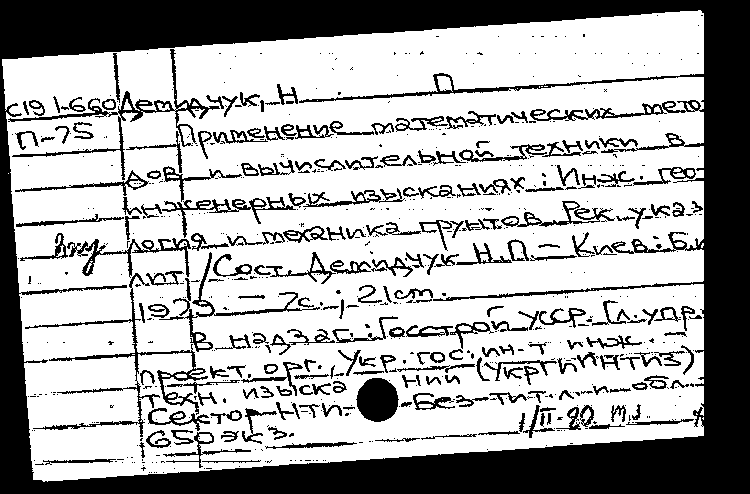 С19 1-660 Демидчук, Н П
П-75 Применение математических мето
дов и вычислительной техники в
инженерных изысканиях: Инж. гео-
логия и механика грунтов. Рек. указ
лит. / Сост. Демидчук Н.П. – Киев: Б.и
1979. – 7с.; 21см.
В надзаг.: Госстрой УССР. Гл. упр.
проект. орг., Укр. гос. ин-т инж. –
техн. изыска ний (УкрГИИНТИЗ)
Сектор НТИ. – Без тит. л. и обл
650 экз. 1/II-80